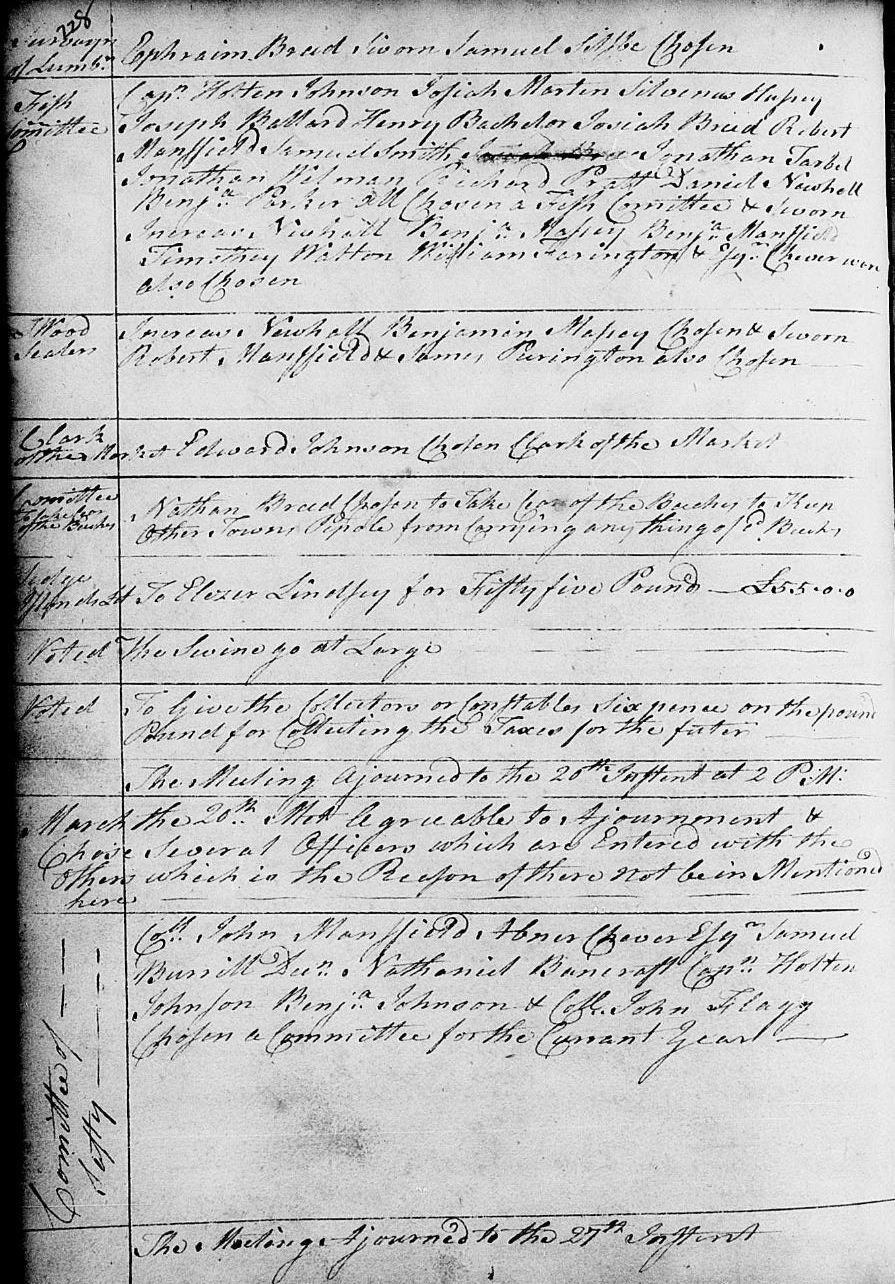 228
Surveyr
of Lumbr
Ephraim Breed Sworn Samuel Silsbe Chosen
Fish
Comittee
Capn Holten Johnson Josiah Marten Silvenus Hussey
Joseph Ballard Henry Bachelor Josiah Breed Robert
Mansfield Samuel Smith Jonathan Tarbel
Jonathan Wilman Richard Pratt Daniel Newhall
Benja Parker all Chosen a Fish Comittee & Sworn
Increas Newhall Benja Massey Benja Mansfield
Timothey Walton William Farington & Esqr Chever were
also Chosen
Wood
Sealers
Increas Newhall Benjamin Massey Chosen & Sworn
Robert Mansfield & James Purington also Chosen
Clark
of the Market
Edward Johnson Chosen Clark of the Market
Comittee
of the Beaches
Nathan Breed Chosen to Take Car of the Beaches to Keep
Other Towns Pepole from Carrying any thing of sd Beach
To Elezer Lindsey for Fifty five Pound — £55.0.0
Voted The Swine go at Large
Voted To Give the Collectors or Constables Six pence on the pound
Pound for Collecting the Taxes for the futer
The Meeting Ajourned to the 20th Instent at 2 P.M:
March the 20th Met Agreeable to Ajournment &
Chose Several Officers which are Entered with the
Others which is the Reeson of there not bein Mentioned
here
Coll John Mansfield Abner Chever Esqr Samuel
Burrill Decn Nathaniel Bancraft Capn Holten
Johnson Benja Johnson & Coll John Flagg
Chosen a Committee for the Currant Year
Comittee of
Safty
The Meeting Ajourned to the 27th Instent